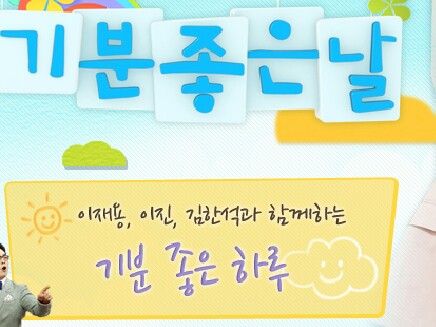 기분좋은날
이재용, 이진, 김한석과 함께하는
기분 좋은 하루